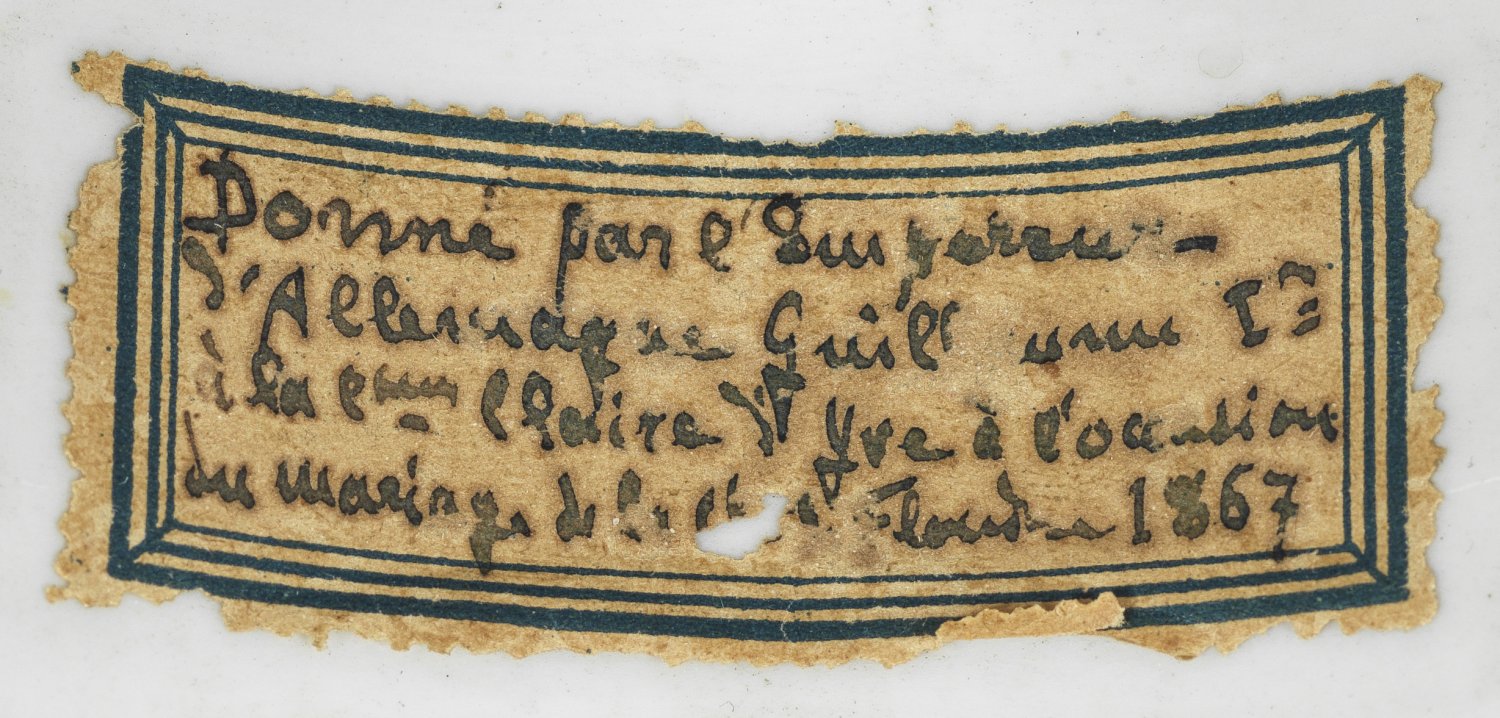 Donné par l'Empereur -
d'Allemagne Guillaume Ier
à la Ctesse Claire d' Yve à l'occasion
du mariage de la de Flandre 1867